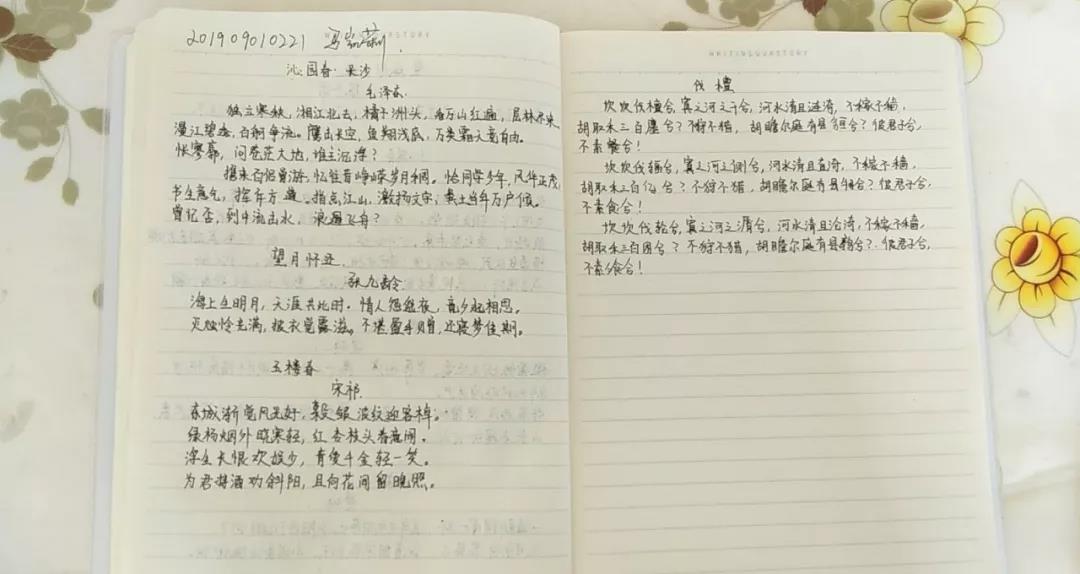 201909010221 冯
沁园春·长沙
毛泽东
独立寒秋，湘江北去，橘子洲头，看万山红遍，层林尽染，
漫江碧透，百舸争流。鹰击长空，鱼翔浅底，万类霜天竞自由。
怅寥廓，问苍茫大地，谁主沉浮？
携来百侣曾游，忆往昔峥嵘岁月稠。恰同学少年，风华正茂，
书生意气，挥斥方遒。指点江山，激扬文字，粪土当年万户侯。
曾记否，到中流击水，浪遏飞舟？
望月怀远
张九龄
海上生明月，天涯共此时。情人怨遥夜，竟夕起相思。
灭烛怜光满，披衣觉露滋。不堪盈手赠，还寝梦佳期。
玉楼春
宋祁
东城渐觉风光好，縠皱波纹迎客棹。
绿杨烟外晓寒轻，红杏枝头春意闹。
浮生长恨欢娱少，肯爱千金轻一笑。
为君持酒劝斜阳，且向花间留晚照。
伐檀
坎坎伐檀兮，寘之河之干兮，河水清且涟漪，不稼不穑，
胡取禾三百廛兮？不狩不猎，胡瞻尔庭有县狟兮？彼君子兮，
不素餐兮！
坎坎伐辐兮，寘之河之侧兮，河水清且直漪，不稼不穑，
胡取禾三百亿兮？不狩不猎，胡瞻尔庭有县特兮？彼君子兮，
不素食兮！
坎坎伐轮兮，寘之河之漘兮，河水清且沦漪，不稼不穑，
胡取禾三百囷兮？不狩不猎，胡瞻尔庭有县鹑兮？彼君子兮，
不素飧兮！